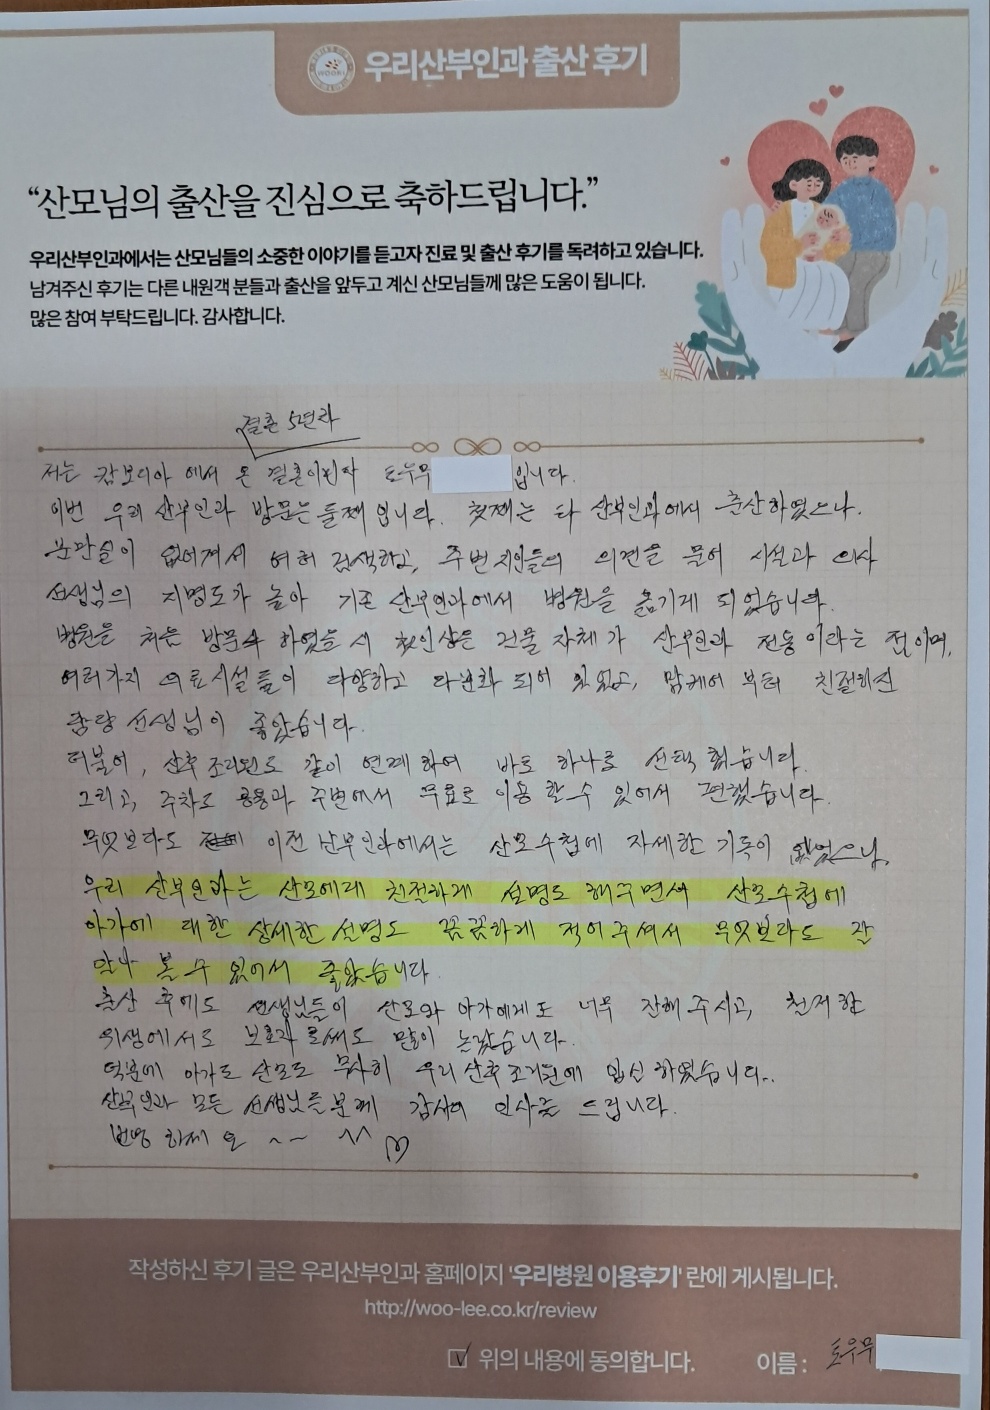 우리산부인과 출산 후기
“산모님의 출산을 진심으로 축하드립니다.”
우리산부인과에서는 산모님들의 소중한 이야기를 듣고자 진료 및 출산 후기를 독려하고 있습니다.
남겨주신 후기는 다른 내원객 분들과 출산을 앞두고 계신 산모님들께 많은 도움이 됩니다.
많은 참여 부탁드립니다. 감사합니다.
결혼 5년차
저는 캄보디아에서 온 결혼이민자 토우무 입니다.
이번 우리 산부인과 방문는 둘째 입니다. 첫째는 타 산부인과에서 출산하였으나.
분만실이 없어져서 여허 검색하고, 주변 지인들의 의견을 물어 시설과 의사
선생님의 지명도가 높아 기존 산부인과에서 병원을 옮기게 되었습니다.
병원을 처음 방문 하였을 시 첫인상은 건물 자체가 산부인과 전용이라는 점이며,
여러가지 의료시설들이 다양하고 다변화 되어 있었고, 맘케어 부터 친절하신
담당 선생님이 좋았습니다.
더불어, 산후조리원도 같이 연계하여 바로 하나로 선택 했습니다.
그리고, 주차도 공통과 주변에서 무료로 이용 할 수 있어서 편했습니다.
무엇보다도 이전 산부인과에서는 산모수첩에 자세한 기록이 없었으나,
우리 산부인과는 산모에게 친절하게 설명도 해주면서 산모수첩에
아가에 대한 상세한 설명도 꼼꼼하게 적어주셔서 무엇보라도 잘
알아 볼 수 있어서 좋았습니다.
출산 후에도 선생님들이 산모와 아가에게도 너무 잘해 주시고, 철저한
위생에서도 보호자로써도 많이 놀랐습니다.
덕분에 아가도 산모도 무사히 우리산후조리원에 입신 하였습니다..
산부인과 모든 선생님들분께 감사의 인사를 드립니다.
번영 하세요 ~~ ^^ ♡
작성하신 후기 글은 우리산부인과 홈페이지 '우리병원 이용후기' 란에 게시됩니다.
http://woo-lee.co.kr/review
☑ 위의 내용에 동의합니다. 이름 : 토우무